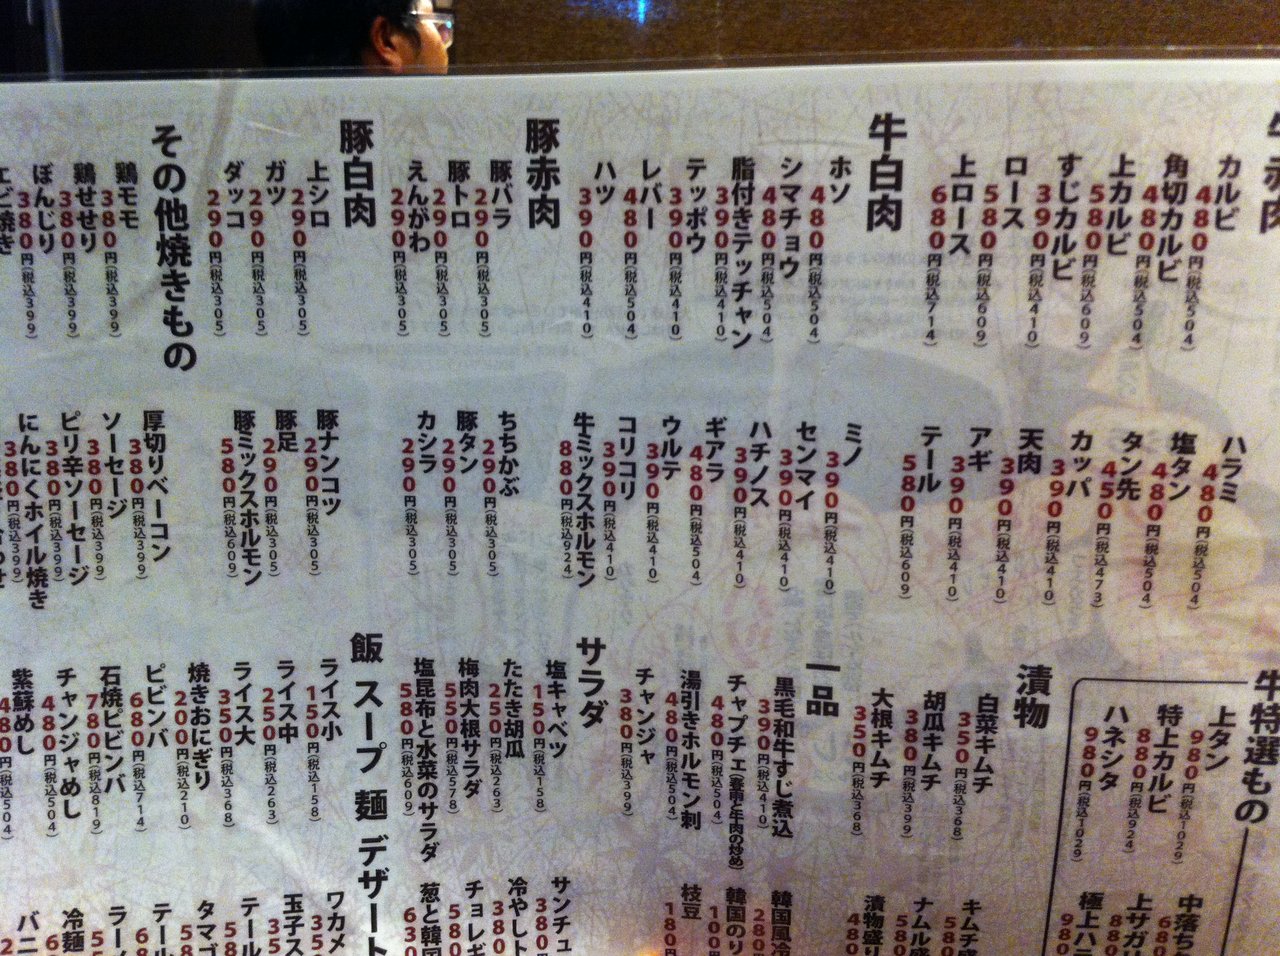 カルビ
480円(税込504)
角切カルビ
480円(税込504)
上カルビ
580円(税込609)
すじカルビ
390円(税込410)
ロース
580円(税込609)
上ロース
680円(税込714)
ハラミ
480円(税込504)
塩タン
480円(税込504)
タン先
450円(税込473)
カッパ
390円(税込410)
天肉
390円(税込410)
アギ
390円(税込410)
テール
580円(税込609)
牛特選もの
上タン
980円(税込1029)
特上カルビ
880円(税込924)
ハネシタ
980円(税込1029)
牛白肉
ホソ
480円(税込504)
シマチョウ
480円(税込504)
脂付きテッチャン
390円(税込410)
テッポウ
390円(税込410)
レバー
480円(税込504)
ハツ
390円(税込410)
ミノ
390円(税込410)
センマイ
390円(税込410)
ハチノス
390円(税込410)
ギアラ
480円(税込504)
ウルテ
390円(税込410)
コリコリ
390円(税込410)
牛ミックスホルモン
880円(税込924)
豚赤肉
豚バラ
290円(税込305)
豚トロ
290円(税込305)
えんがわ
290円(税込305)
ちちかぶ
290円(税込305)
豚タン
290円(税込305)
カシラ
290円(税込305)
豚白肉
上シロ
290円(税込305)
ガツ
290円(税込305)
ダッコ
290円(税込305)
豚ナンコツ
290円(税込305)
豚足
290円(税込305)
豚ミックスホルモン
580円(税込609)
その他焼きもの
鶏モモ
380円(税込399)
鶏せせり
380円(税込399)
ぼんじり
380円(税込399)
エビ焼き
厚切りベーコン
380円(税込399)
ソーセージ
380円(税込399)
ピリ辛ソーセージ
380円(税込399)
にんにくホイル焼き
380円(税込399)
漬物
白菜キムチ
350円(税込368)
胡瓜キムチ
380円(税込399)
大根キムチ
350円(税込368)
一品
黒毛和牛すじ煮込
390円(税込410)
チャプチェ(春雨と牛肉の炒め)
480円(税込504)
湯引きホルモン刺
480円(税込504)
チャンジャ
380円(税込399)
韓国のり
100円
枝豆
180円
サラダ
塩キャベツ
150円(税込158)
たたき胡瓜
250円(税込263)
梅肉大根サラダ
550円(税込578)
塩昆布と水菜のサラダ
580円(税込609)
飯 スープ 麺 デザート
ライス小
150円(税込158)
ライス中
250円(税込263)
ライス大
350円(税込368)
焼きおにぎり
200円(税込210)
ビビンバ
680円(税込714)
石焼ビビンバ
780円(税込819)
チャンジャめし
480円(税込504)
紫蘇めし
480円(税込504)
ワカメ
冷麺